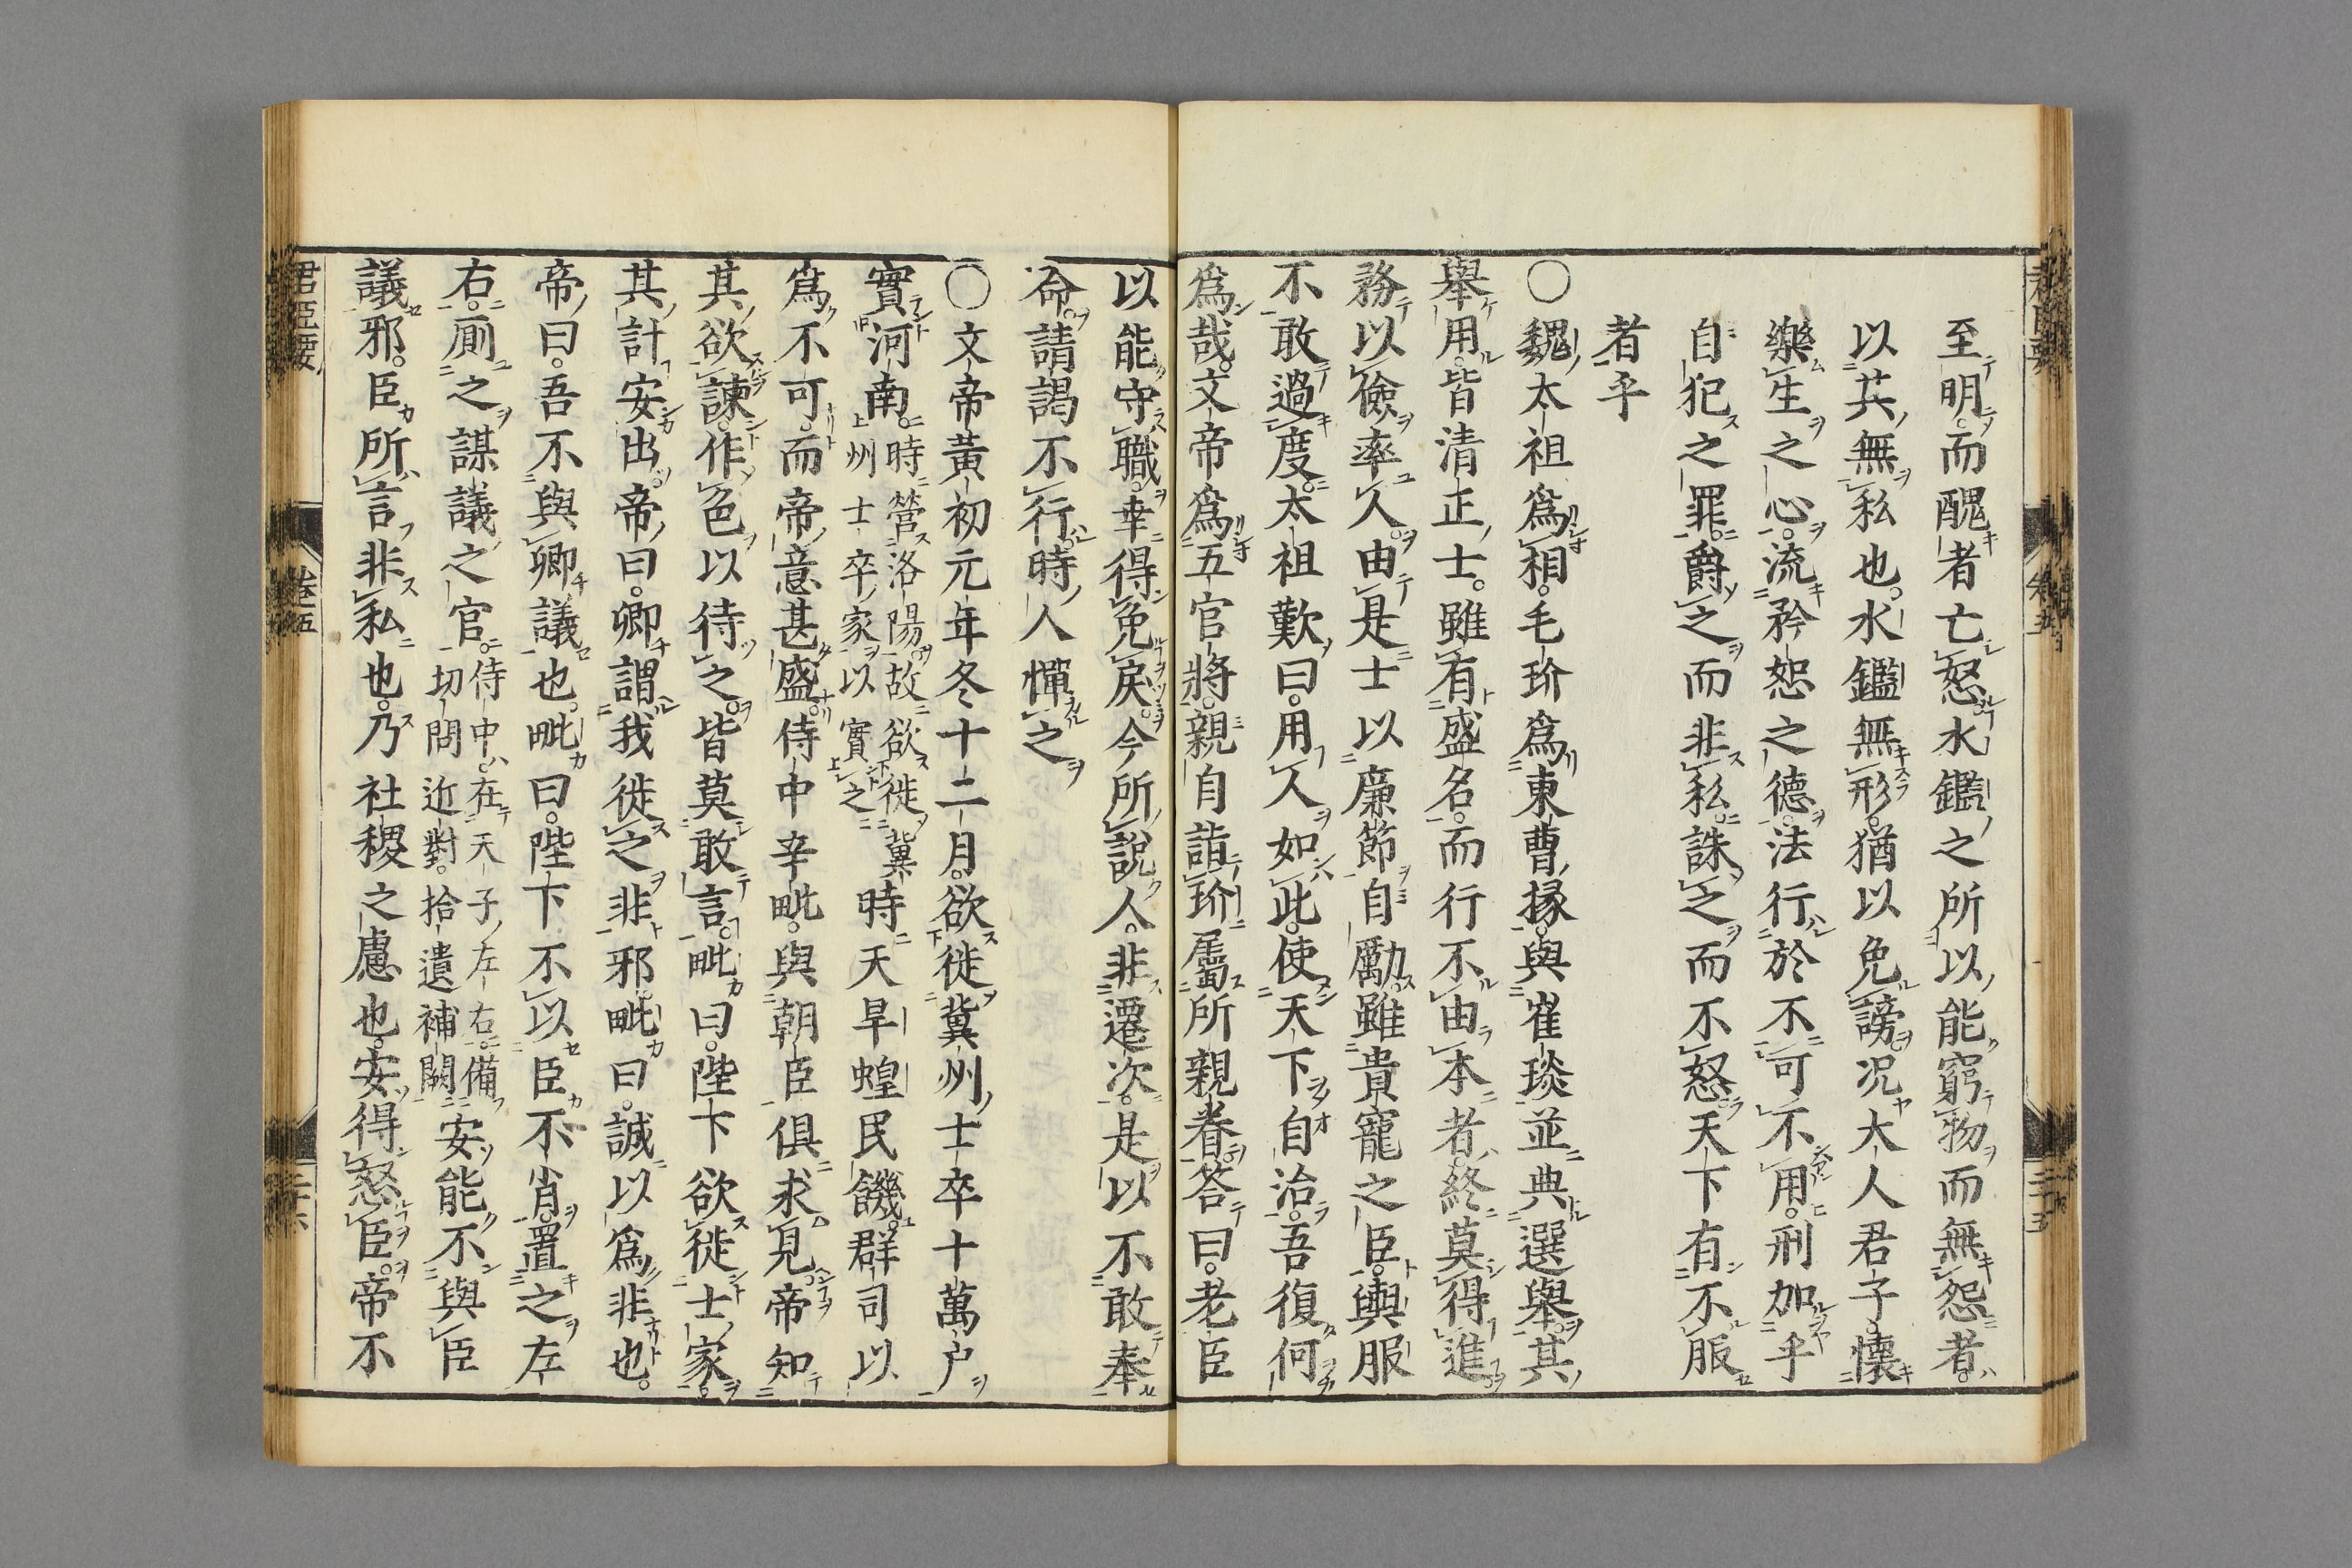 至明而醜者亡怒水鑑之所以能窮物而無怨者
以其無私也水鑑無形猶以免謗況大人君子懷
樂生之心流矜恕之德法行於不可不用刑加乎
自犯之罪爵之而非私誅之而不怒天下有不服
者乎
〇魏太祖爲相毛玠爲東曹掾與崔琰並典選舉其
舉用皆清正士雖有盛名而行不由本者終莫得進
務以儉率人由是士以廉節自勵雖貴寵之臣輿服
不敢過度太祖歎曰用人如此使天下自治吾復何
爲哉文帝爲五官將親自詣玠屬所親眷答曰老臣
以能守職幸得免戾今所說人非遷次是以不敢奉
命請謁不行時人憚之
〇文帝黃初元年冬十二月欲徙冀州士卒十萬户
實河南時營洛陽故欲徙冀
州士卒家以實之時天旱蝗民饑群司以
爲不可而帝意甚盛侍中辛毗與朝臣俱求見帝知
其欲諫作色以待之皆莫敢言毗曰陛下欲徙士家
其計安出帝曰卿謂我徙之非邪毗曰誠以爲非也
帝曰吾不與卿議也毗曰陛下不以臣不肖置之左
右厠之謀議之官侍中在天子左右備
切問近對拾遺補闕安能不與臣
議邪臣所言非私也乃社稷之慮也安得怒臣帝不
君臣
卷五
二十六
卷五
二十五